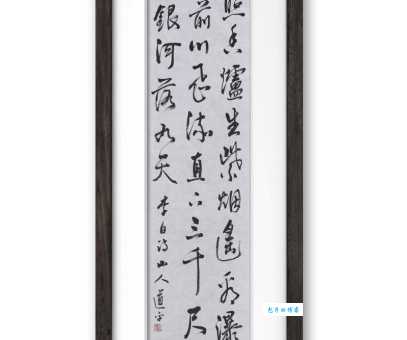 照香爐生紫烟遙看瀑
前川飛流直下三千尺
銀河落九天
李白诗山人道平